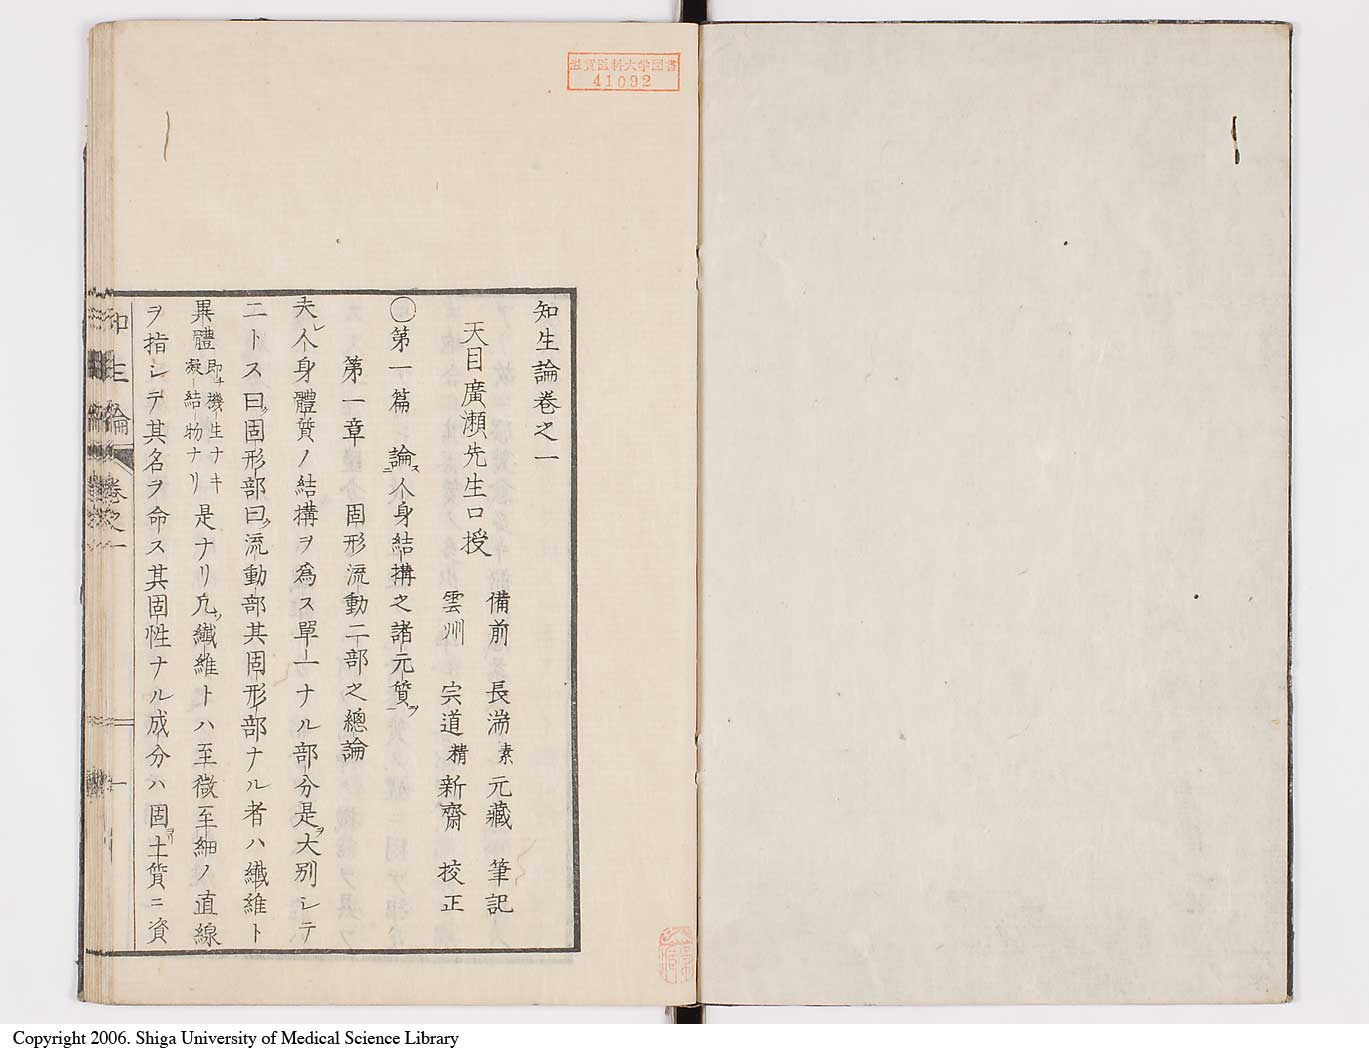 滋賀医科大学図書
41092
知生論卷之一
天目廣瀬先生口授
備前 長湍素元藏 筆記
雲州 宗道精新齋 挍正
〇第一篇 論スニ人身結構之諸元質ヲ一
第一章 固形流動二部之總論
夫レ人身體質ノ結構ヲ爲ス單一ナル部分是ヲ大別シテ
二トス曰ク固形部曰ク流動部其固形部ナル者ハ纎維ト
異體即チ機生ナキ凝結物ナリ是ナリ凡ソ纎維トハ至微至細ノ直線
ヲ指シテ其名ヲ命ス其固性ナル成分ハ固ヨリ土質ニ資
知生論 卷之一 一
Copyright 2006. Shiga University of Medical Science Library